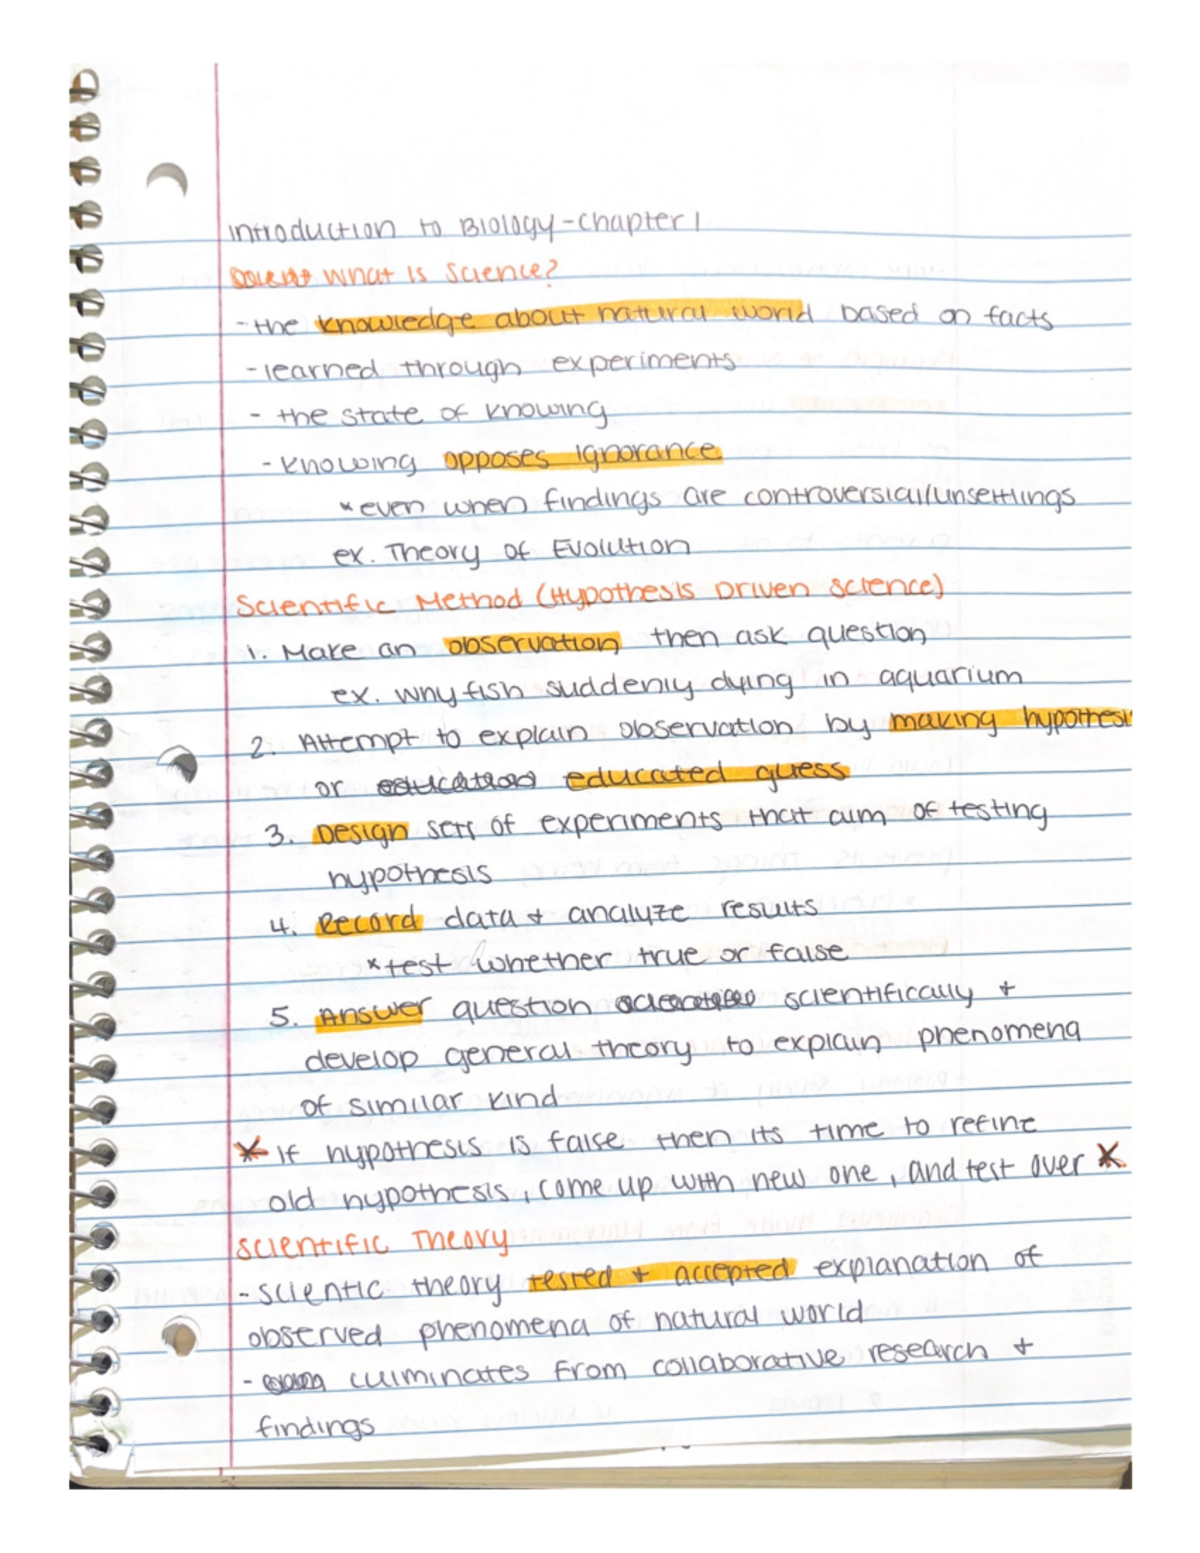 Introduction to Biology - Chapter 1
What is Science?
- the knowledge about natural world based on facts
- learned through experiments
- the state of knowing
- knowing opposes ignorance
* even when findings are controversial/unsettlings
ex. Theory of Evolution
Scientific Method (Hypothesis Driven Science)
1. Make an observation then ask question
ex. why fish suddenly dying in aquarium
2. Attempt to explain observation by making hypothesis
or education educated guess
3. Design sets of experiments that aim of testing
hypothesis
4. Record data + analyze results
* test whether true or false
5. Answer question scientifically +
develop general theory to explain phenomena
of similar kind
* If hypothesis is false then its time to refine
old hypothesis, come up with new one, and test over *
Scientific Theory
- scientic theory tested + accepted explanation of
observed phenomena of natural world
- culminates from collaborative research +
findings